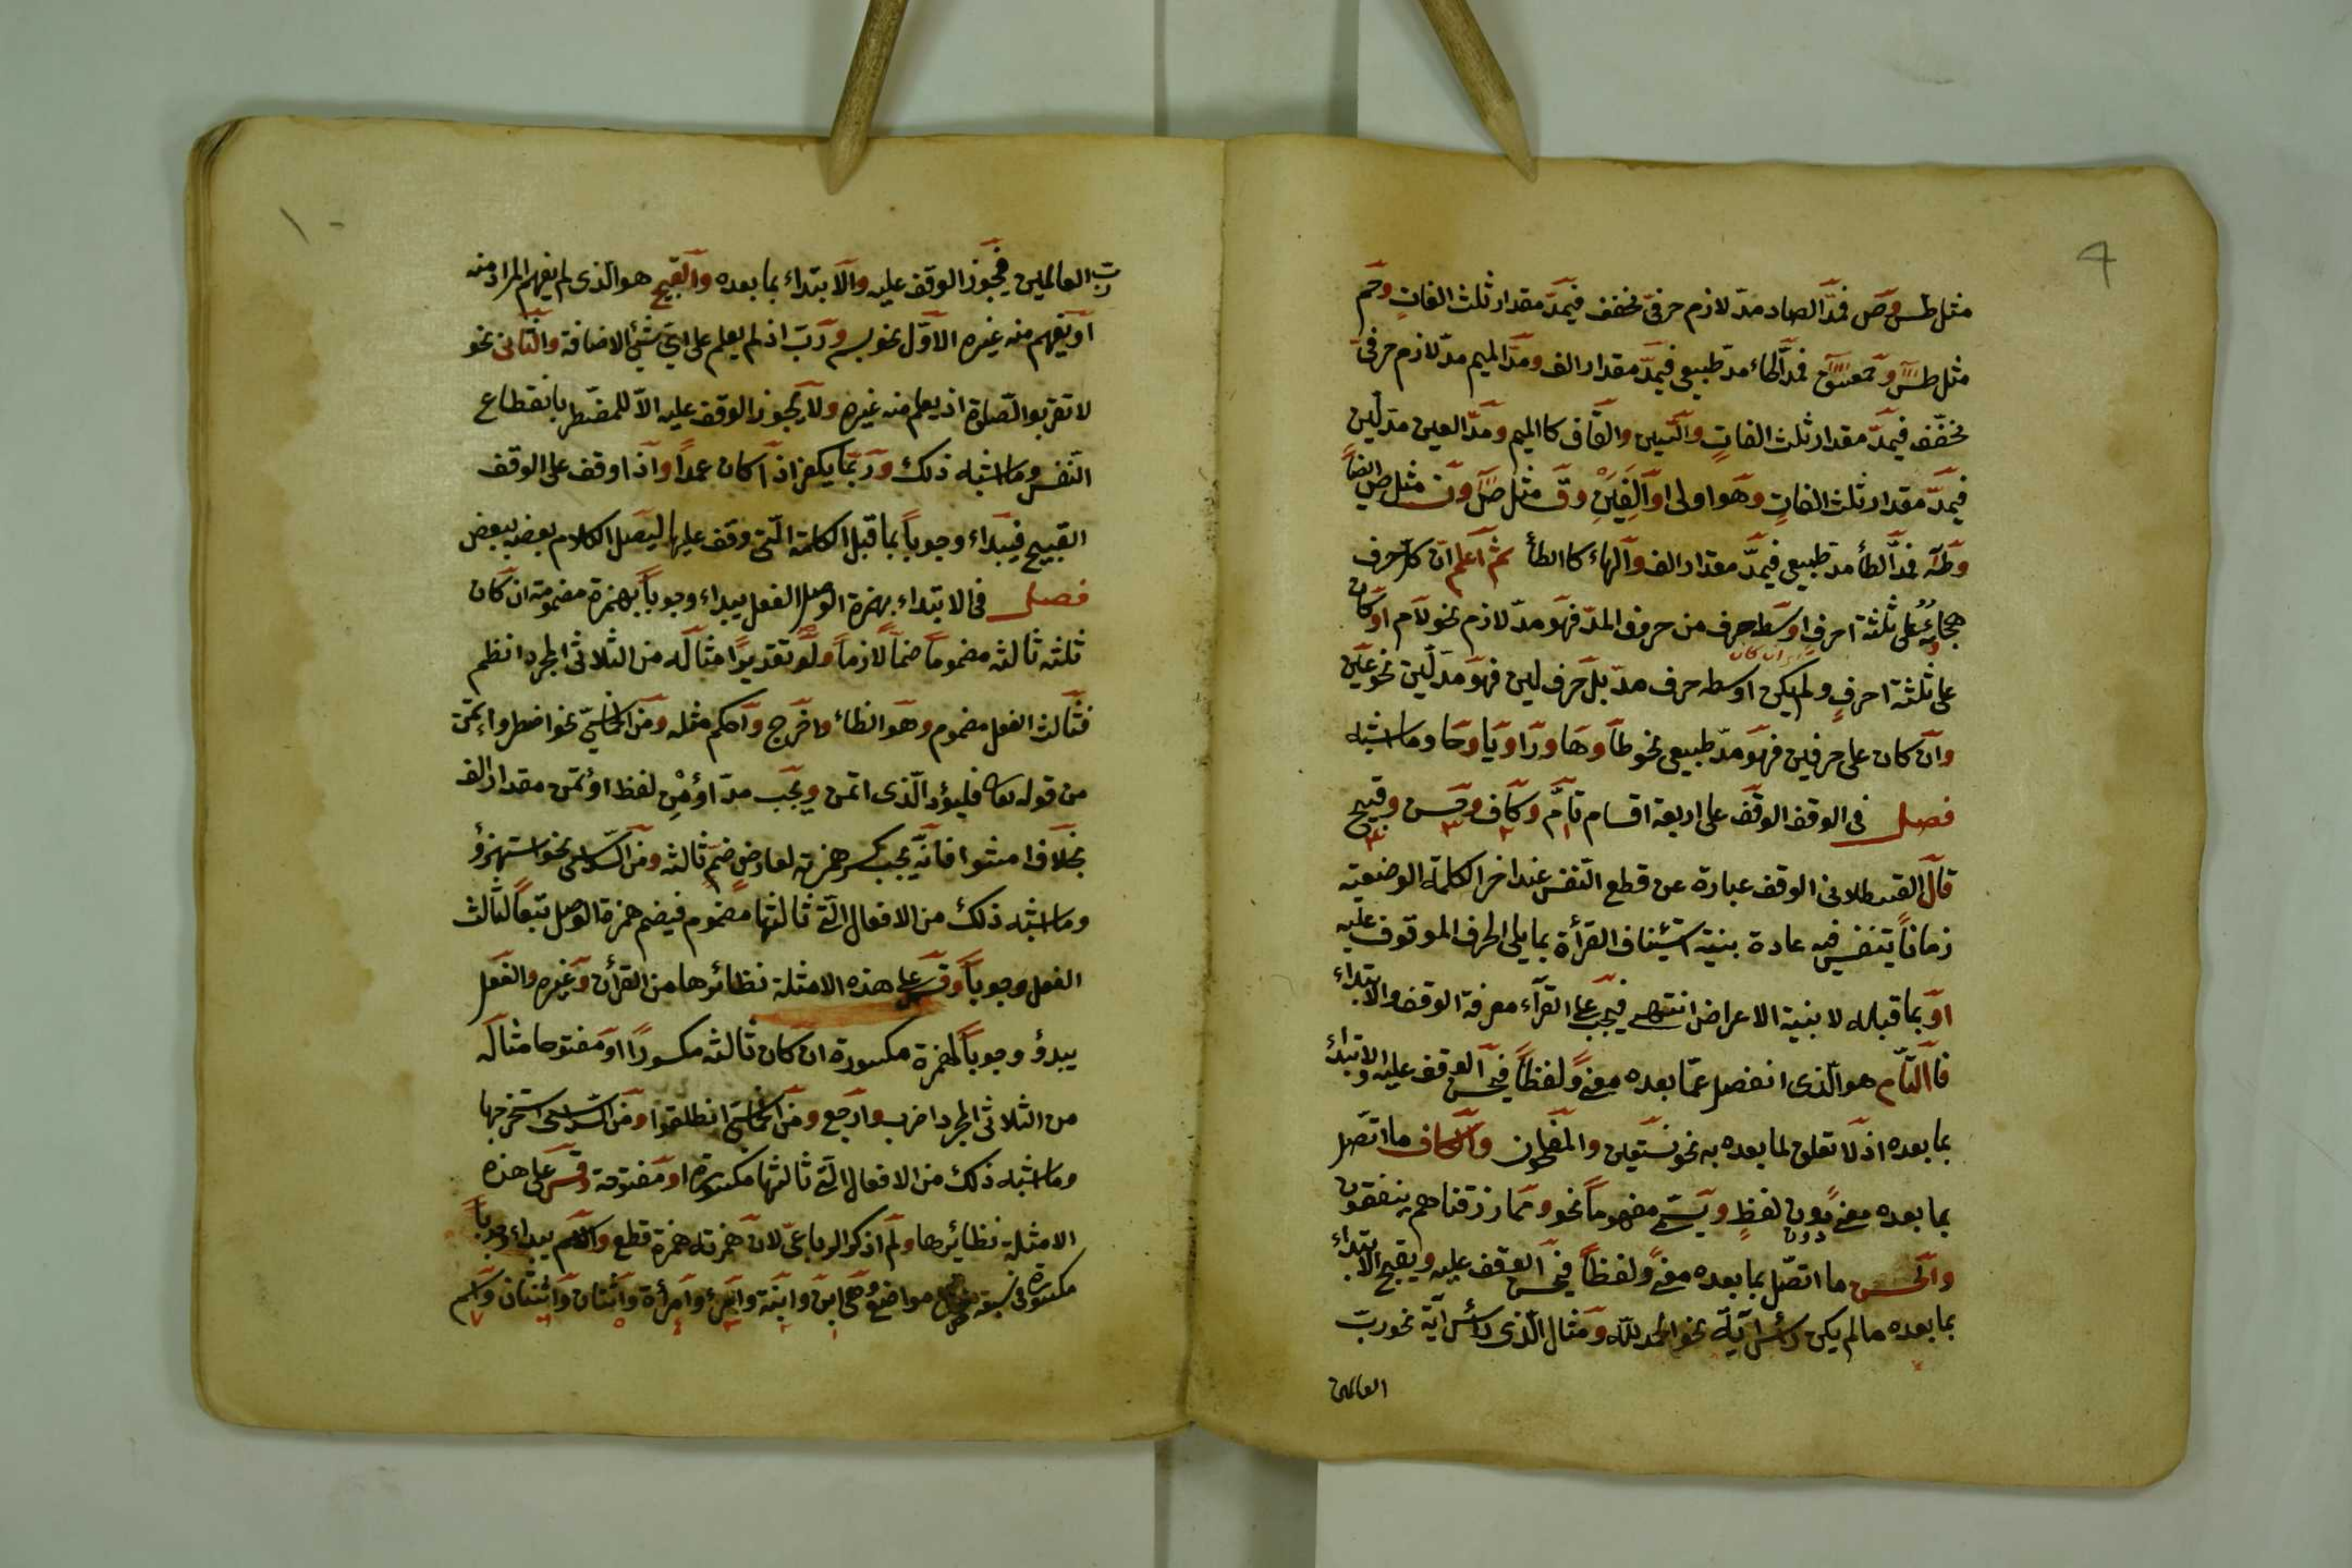 ٩
مثل طس وص فمدّ الصاد مدّ لازم حرفىّ مخفف فيمدّ مقدار ثلث الفاتٍ وحم
مثل طسٓ وحمعسق فمدّ الحاء مدّ طبيعى فيمدّ مقدار الف ومدّ الميم مدّ لازم حرفىّ
مخفّف فيمدّ مقدار ثلث الفاتٍ والسّين والقاف كا الميم ومدّ العين مدّ لين
فيمدّ مقدار ثلث الفاتٍ وهو اولى او اَلِفَيْنِ وق مثل صٓ ون مثل ص ايضاً
وطه فمدّ الطأ مدّ طبيعى فيمدّ مقدار الف والهاء كا الطأ ثم اعلم انّ كلّ حرف
هجاؤه على ثلثة احرفٍ اوسطه حرف من حروف المدّ فهو مدّ لازم نحو لام او كان
على ثلثة احرفٍ ولم يكن اوسطه حرف مدّ بل حرف لين فهو مدّ لين نحو عين
وان كان على حرفين فهو مدّ طبيعى نحو طا وها ورا ويا وحا وما اشبه
فصل فى الوقف الوقف على اربعة اقسام تامّ وكاف وحسن وقبيح
قال القسطلانى الوقف عبارة عن قطع النّفس عند اخر الكلمة الوضعية
زماناً يتنفّس فيه عادة بنية استيناف القرأة بما يلى الحرف الموقوف عليه
او بما قبله لا بنية الاعراض انتهى فيجب على القرّاء معرفة الوقف والابتداء
فا التّام هو الّذى انفصل عمّا بعده معنىً ولفظاً فيحسن الوقف عليه والابتداء
بما بعده اذ لا تعلق لما بعده به نحو نستعين والمفلحون والكاف ما اتّصل
بما بعده معنىً دون لفظٍ ويسمّى مفهوماً نحو وممّا رزقناهم ينفقون
والحسن ما اتّصل بما بعده معنىً ولفظاً فيحسن الوقف عليه ويقبح الابتداء
بما بعده ما لم يكن رأس آية نحو الحمد للّه ومثال الّذى رأس آية نحو ربّ
العالمين
١٠
ربّ العالمين فيجوز الوقف عليه والابتداء بما بعده والقبيح هو الّذى لم يفهم المراد منه
او يفهم منه غيره الاوّل نحو بسم وربّ اذ لم يعلم على اىّ شئ الاضافة والثّانى نحو
لا تقربو الصّلوة اذ يعلم منه غيره ولا يجوز الوقف عليه الاّ للمضّطر بانقطاع
النّفس وما اشبه ذلك وربّما يكفر اذا كان عمداً واذا وقف على الوقف
القبيح فيبداء وجوباً بما قبل الكلمة الّتى وقف عليها ليتصل الكلام بعضه ببعض
فصل فى الابتداء بهمزة الوصل الفعل يبداء وجوباً بهمزة مضمومة ان كان
ثلثه ثالثه مضموماً ضمّاً لازماً ولو تقديراً مثاله من الثلاثى المجرد انظم
فثالث الفعل مضموم وهو الظاء واخرج واحكم مثله ومن الخماسىّ نحو اضطر واءتمن
من قوله تعا فليؤد الّذى اتمن ويجب مدّ اؤمن لفظ اؤتمن مقدار الف
بخلاف امشوا فانّه يجب كسر همزته لعارض ضمّ ثالثه ومن السّداسى نحو استهزؤ
وما اشبه ذلك من الافعال الّتى ثالثها مضموم فيضم همزة الوصل تبعاً لثالث
الفعل وجوباً وقس على هذه الامثلة نظائرها من القرأن وغيره والفعل
يبدؤ وجوباً بهمزة مكسورة ان كان ثالثه مكسوراً او مفتوحا مثاله
من الثلاثى المجرد اضرب وارجع ومن الخماسىّ انطلقوا ومن السّداسى استخرجها
وما اشبه ذلك من الافعال الّتى ثالثها مكسورة او مفتوحة وقس على هذه
الامثلة نظائرها ولم اذكر الرباعىّ لانّ همزته همزة قطع والاسم يبداء وجوباً
مكسورة فى سبعة مواضع وهى ابن وابنة وامرئ وامرأة واثنان واثنتان واسم